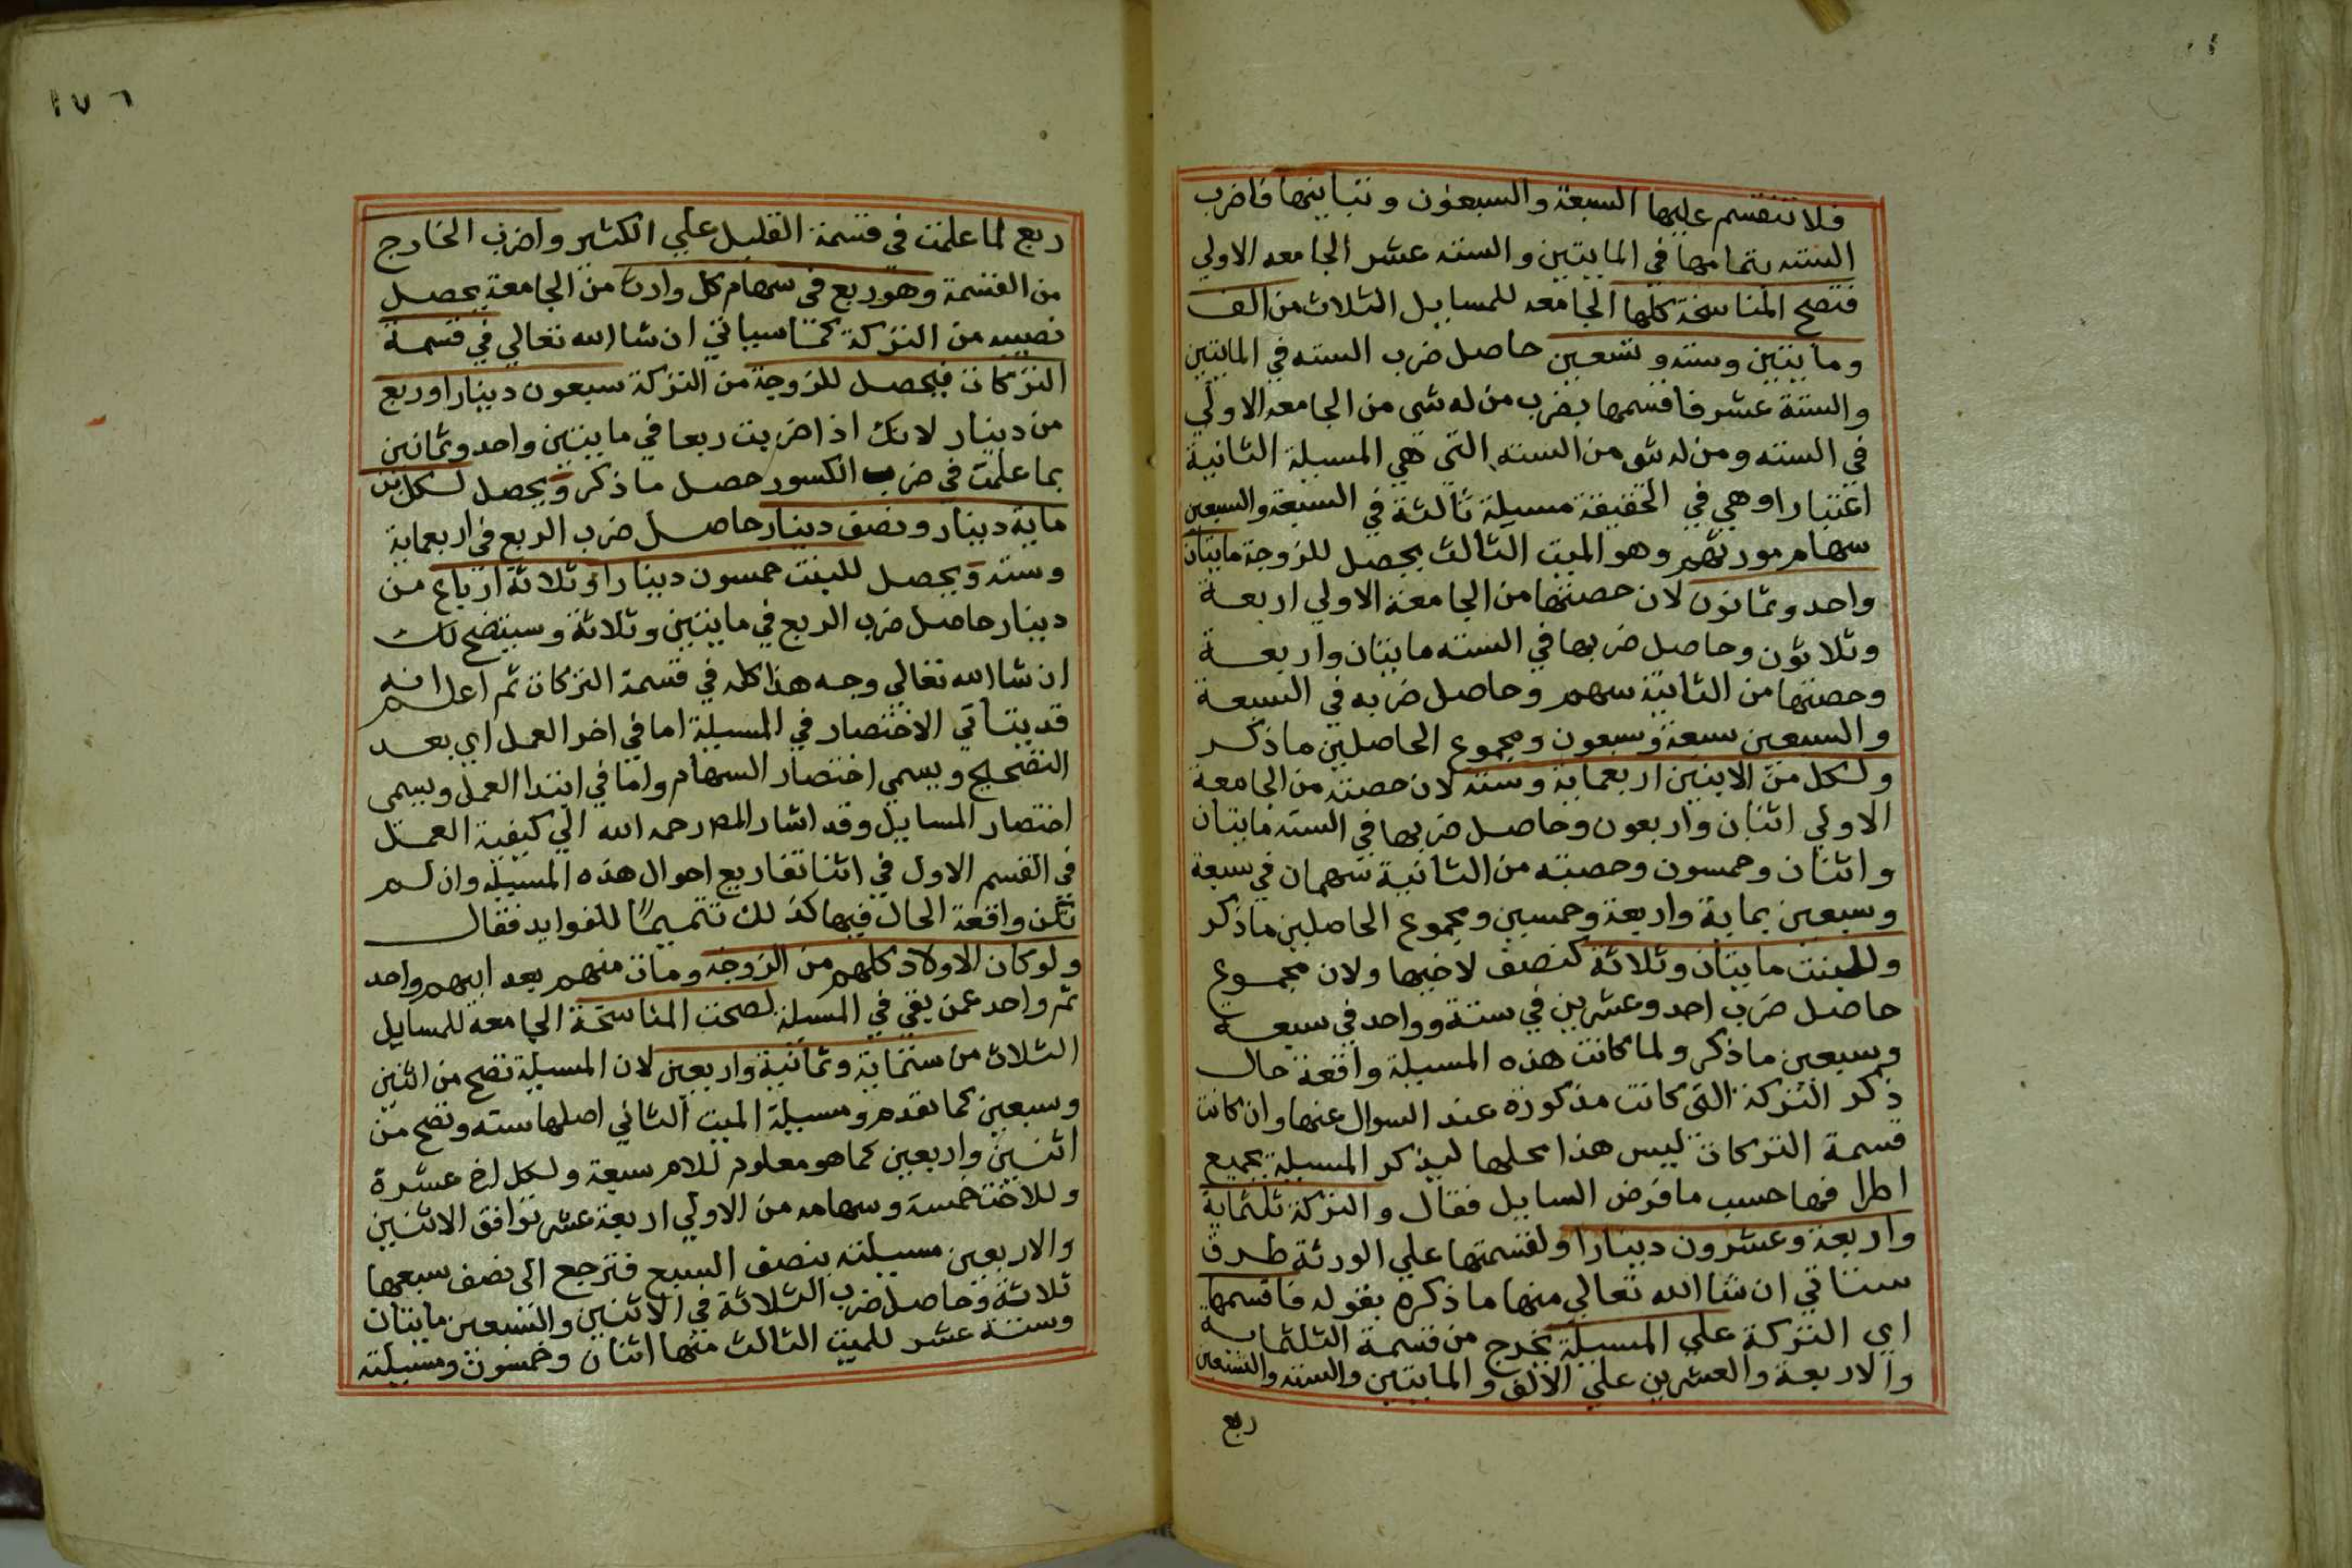 فلا تنقسم عليها السبعة والسبعون وتباينها فاضرب
الستة بتمامها في المايتين والستة عشر الجامعه الاولي
فتصح المناسخة كلها الجامعه للمسايل الثلاث من الف
ومايتين وستة وتسعين حاصل ضرب الستة في المايتين
والستة عشر فاقسمها بضرب من له شي من الجامعه الاولي
في الستة ومن له شي من الستة التي هي المسيلة الثانية
اعتبارا وهي في الحقيقة مسيلة ثالثة في السبعة والسبعين
سهام مورثهم وهو الميت الثالث يحصل للزوجة مايتان
واحد وثمانون لان حصتها من الجامعة الاولي اربعة
وثلاثون وحاصل ضربها في الستة مايتان واربعة
وحصتها من الثانية سهم وحاصل ضربه في السبعة
والسبعين سبعة وسبعون ومجموع الحاصلين ما ذكر
ولكل من الابنين اربعماية وستة لان حصته من الجامعة
الاولي اثنان واربعون وحاصل ضربها في الستة مايتان
واثنان وخمسون وحصته من الثانية سهمان في سبعة
وسبعين بماية واربعة وخمسين ومجموع الحاصلين ما ذكر
وللبنت مايتان وثلاثة كنصف لاخيها ولان مجموع
حاصل ضرب احد وعشرين في ستة وواحد في سبعة
وسبعين ما ذكر ولما كانت هذه المسيلة واقعة حال
ذكر التركة التي كانت مذكورة عند السوال عنها وان كانت
قسمة التركات ليس هذا محلها ليذكر المسيلة بجميع
اطرافها حسب ما فرض السايل فقال والتركة ثلثماية
واربعة وعشرون دينارا ولقسمتها علي الورثة طرق
ستاتي ان شا الله تعالي منها ما ذكره بقوله فاقسمها
اي التركة علي المسيلة يخرج من قسمة الثلثماية
والاربعة والعشرين علي الالف والمايتين والستة والتسعين
ربع
١٧٦
ربع لما علمت في قسمة القليل علي الكثير واضرب الخارج
من القسمة وهو ربع في سهام كل وارث من الجامعة يحصل
نصيبه من التركة كما سياتي ان شا الله تعالي في قسمة
التركات فيحصل للزوجة من التركة سبعون دينارا وربع
من دينار لانك اذا ضربت ربعا في مايتين واحد وثمانين
بما علمت في ضرب الكسور حصل ما ذكر ويحصل لكل ابن
ماية دينار ونصف دينار حاصل ضرب الربع في اربعماية
وستة ويحصل للبنت خمسون دينارا وثلاثة ارباع من
دينار حاصل ضرب الربع في مايتين وثلاثة وسيتضح لك
ان شا الله تعالي وجه هذا كله في قسمة التركات ثم اعلم انه
قد يتاتي الاختصار في المسيلة اما في اخر العمل اي بعد
التصحيح ويسمي اختصار السهام واما في ابتدا العمل ويسمى
اختصار المسايل وقد اشار المصر رحمه الله الي كيفية العمل
في القسم الاول في اثنا تفاريع احوال هذه المسيلة وان لم
تكن واقعة الحال فيها كذلك تتميمًا للفوايد فقال
ولو كان الاولاد كلهم من الزوجة ومات منهم بعد ابيهم واحد
ثم واحد عمن بقي في المسيلة لصحت المناسخة الجامعة للمسايل
الثلاث من ستماية وثمانية واربعين لان المسيلة تصح من اثنين
وسبعين كما تقدم ومسيلة الميت الثاني اصلها ستة وتصح من
اثنين واربعين كما هو معلوم للام سبعة ولكل اخ عشرة
وللاخت خمسة وسهامه من الاولي اربعة عشر توافق الاثنين
والاربعين مسيلته بنصف السبع فترجع الى نصف سبعها
ثلاثة وحاصل ضرب الثلاثة في الاثنين والسبعين مايتان
وستة عشر للميت الثالث منها اثنان وخمسون ومسيلته